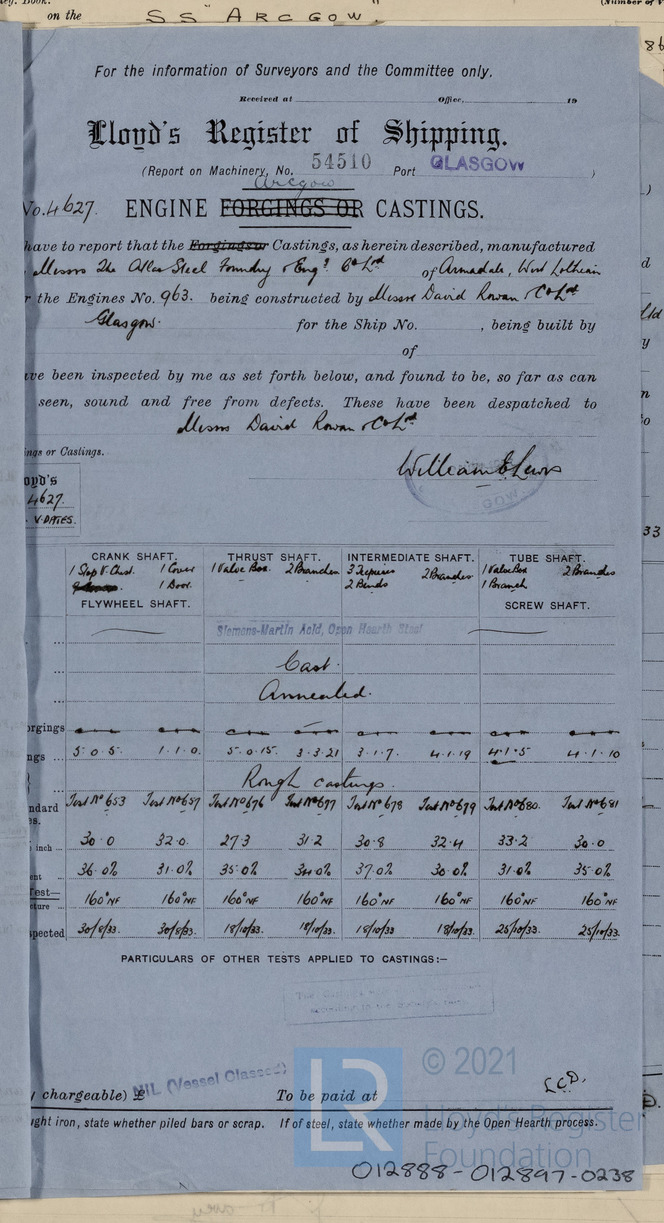 on the SS "ARCGOW.
For the information of Surveyors and the Committee only.
Received at Office, 19
Lloyd's Register of Shipping.
(Report on Machinery, No. 54510 Port GLASGOW )
Arcgow
No. 4627. ENGINE FORGINGS OR CASTINGS.
have to report that the Forgings or Castings, as herein described, manufactured
Messrs The Atlas Steel Foundry & Engg. Co Ltd of Armadale, West Lothian
r the Engines No. 963. being constructed by Messrs David Rowan & Co Ltd
Glasgow. for the Ship No. , being built by
of
ve been inspected by me as set forth below, and found to be, so far as can
seen, sound and free from defects. These have been despatched to
Messrs David Rowan & Co Ltd
ngs or Castings.
William E Lewis
oyd's
4627.
V.DATES.
33
CRANK SHAFT. THRUST SHAFT. INTERMEDIATE SHAFT. TUBE SHAFT.
1 Stop V. Chest. 1 Cover 1 Valve Box. 2 Branches 2 Branches 1 Valve Box 2 Branches
1 Door. 2 Bends 1 Branch
FLYWHEEL SHAFT. SCREW SHAFT.
Siemens-Martin Acid, Open Hearth Steel
Cast.
Annealed.
orgings
ngs 5.0.5. 1.1.0. 5.0.15. 3.3.21 3.1.7. 4.1.19 4.1.5 4.1.10
Rough castings.
ndard Test No 653 Test No 657 Test No 676 Test No 677 Test No 678 Test No 679 Test No 680. Test No 681
es.
inch 30.0 32.0. 27.3 31.2 30.8 32.4 33.2 30.0
ent 36.0% 31.0% 35.0% 34.0% 37.0% 30.0% 31.0% 35.0%
Test—
cture 160° NF 160° NF 160° NF 160° NF 160° NF 160° NF 160° NF 160° NF
spected 30/8/33. 30/8/33. 18/10/33. 18/10/33. 18/10/33 18/10/33. 25/10/33. 25/10/33.
PARTICULARS OF OTHER TESTS APPLIED TO CASTINGS:—
y chargeable) £ NIL (Vessel Classed) To be paid at
L.C.D.
ught iron, state whether piled bars or scrap. If of steel, state whether made by the Open Hearth process.
LR © 2021
Lloyd's Register
Foundation
012888-012897-0238